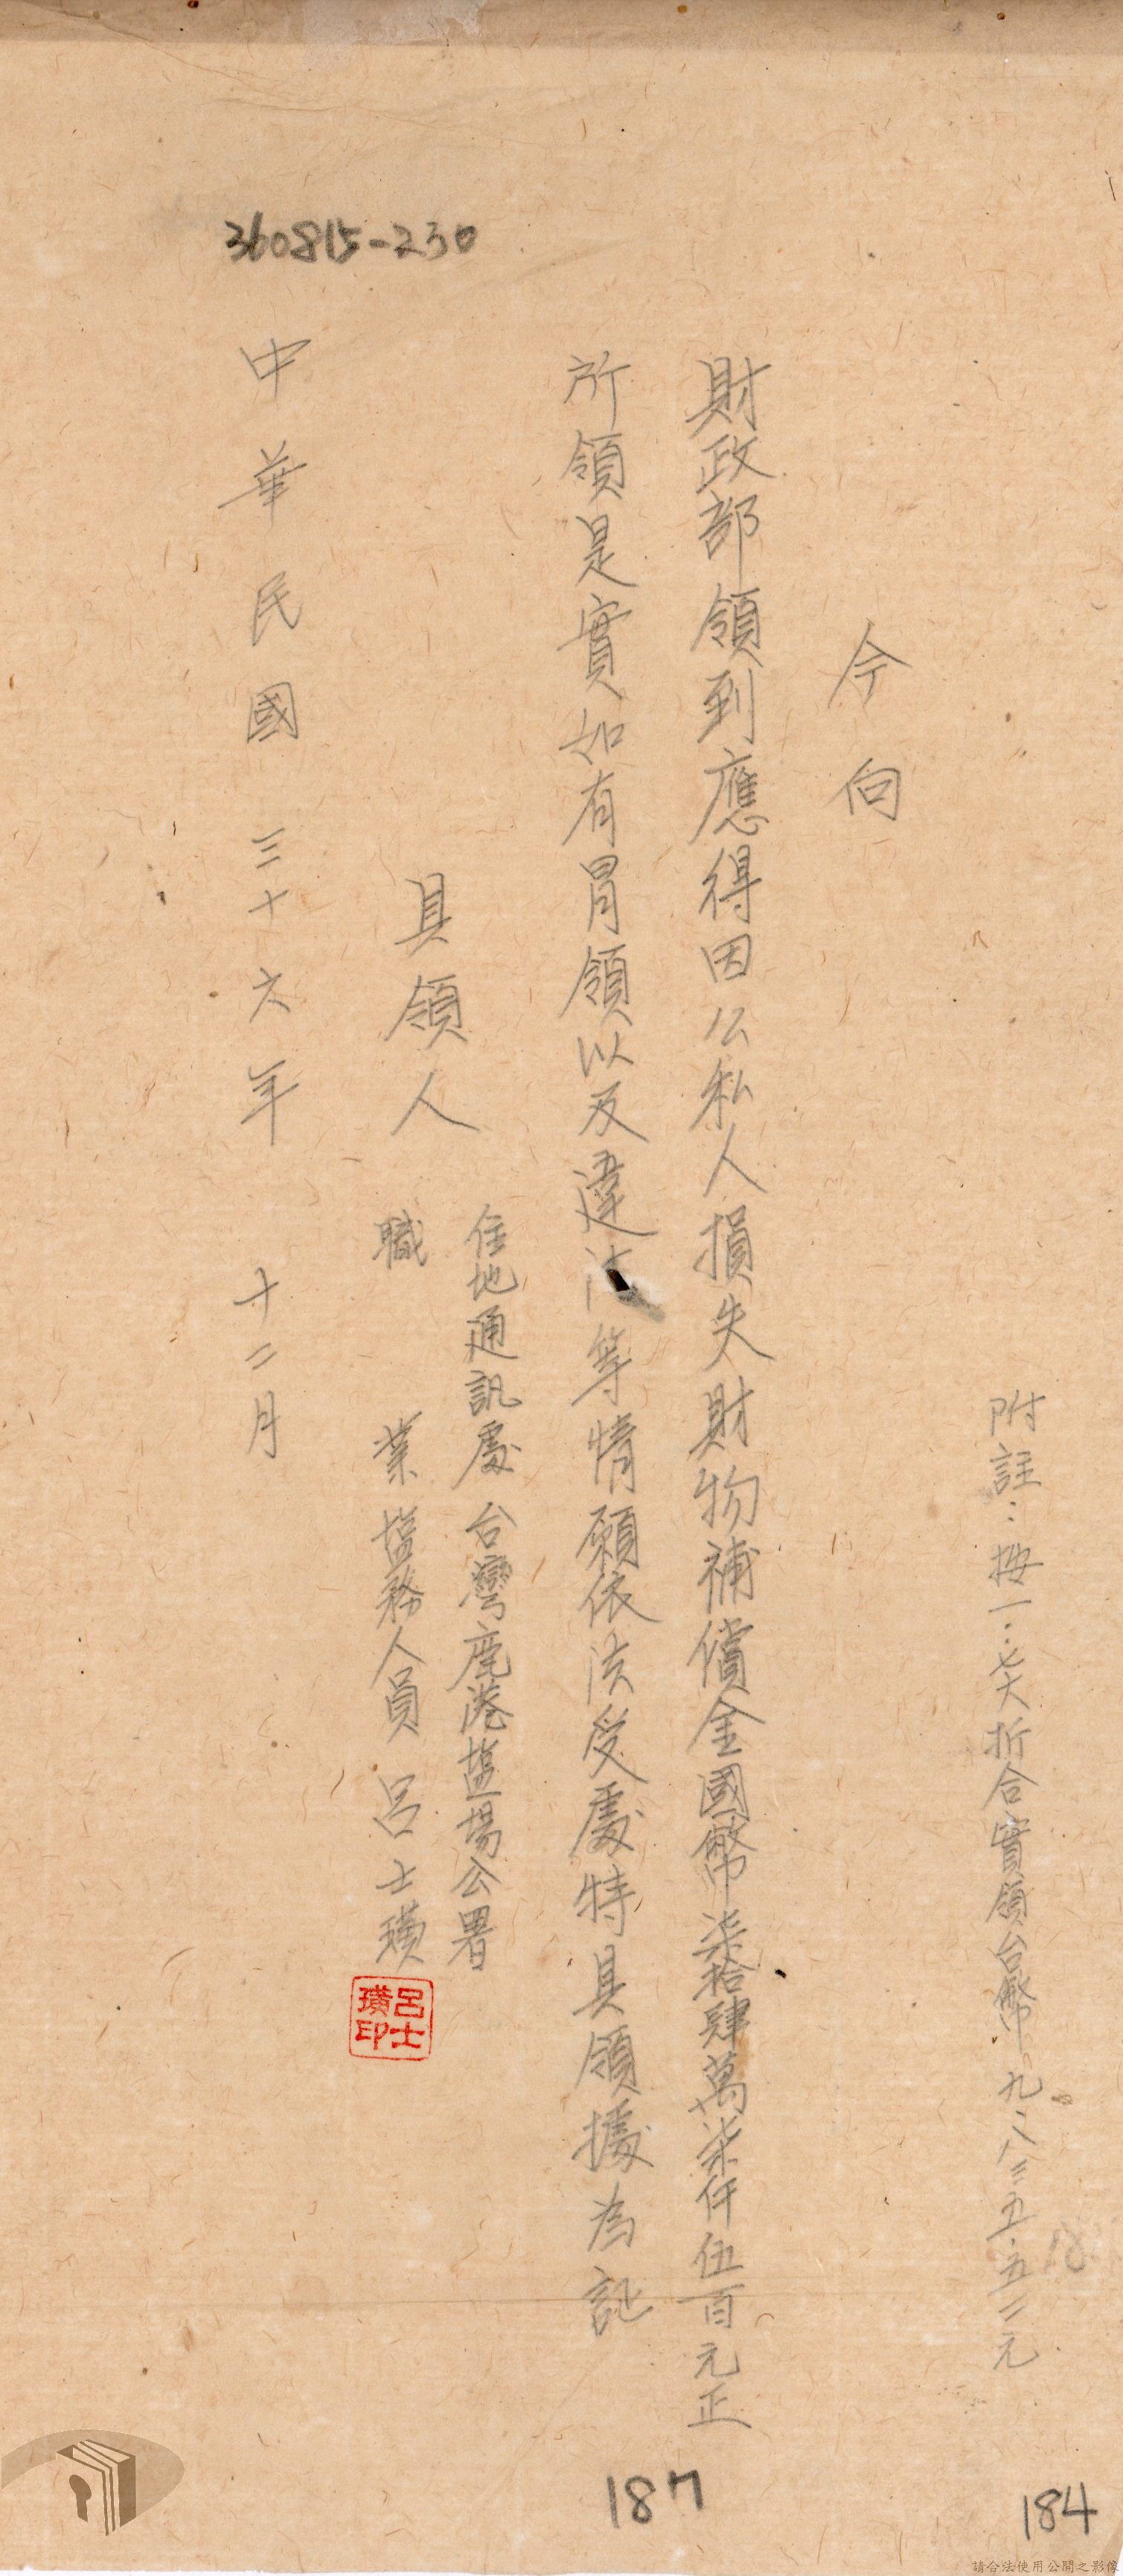 附註：按一：七六折合實領台幣九、八三五.五二元
今向
財政部領到應得因公私人損失財物補償金國幣柒拾肆萬柒仟伍百元正
所領是實如有冒領以及違法等情願依法受處特具領據為証
具領人
住地通訊處 台灣鹿港塩場公署
職業 塩務人員 呂士璜
呂士璜印
中華民國三十六年十二月
360815-230
187
184
18
請合法使用公開之影像